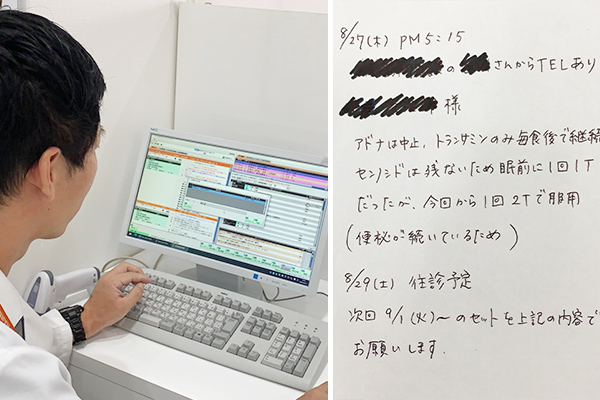 8/27(木) PM5:15
の さんからTELあり
様
アドナは中止、トランサミンのみ毎食後で継続
センノシドは残ないため眠前に1回1T
だったが、今回から1回2Tで服用
(便秘が続いているため)
8/29(土) 往診予定
次回 9/1(火)〜のセットを上記の内容で
お願いします.